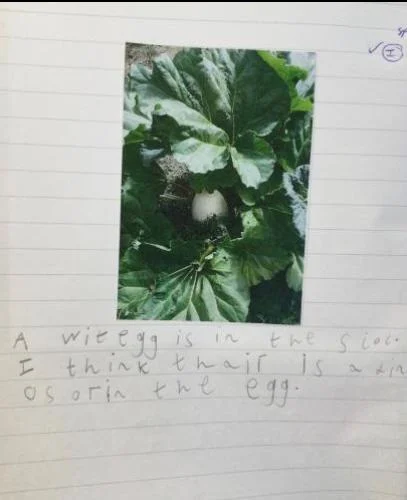 I
A wit egg is in the
I think thair is a din
osorin the egg.